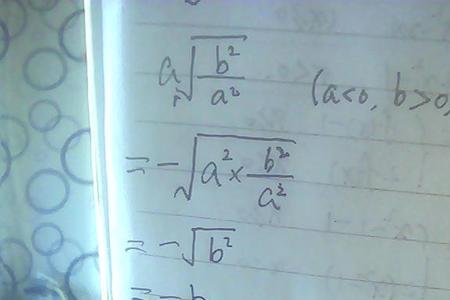 a√(b²/a²) (a<0, b>0,
= -√(a² × b²/a²)
= -√b²
= -b